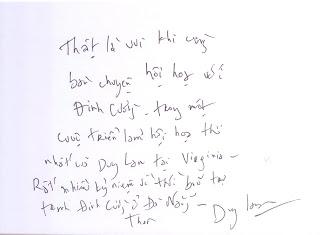 Thật là vui khi cùng
bàn chuyện hội họa với
Đinh Cường. trong một
cuộc triển lãm hội họa thi
nhất với Duy Lam tại Virginia –
Rất nhiều kỷ niệm về thời
tranh Đinh Cường ở Đà Nẵng –
Duy Lam